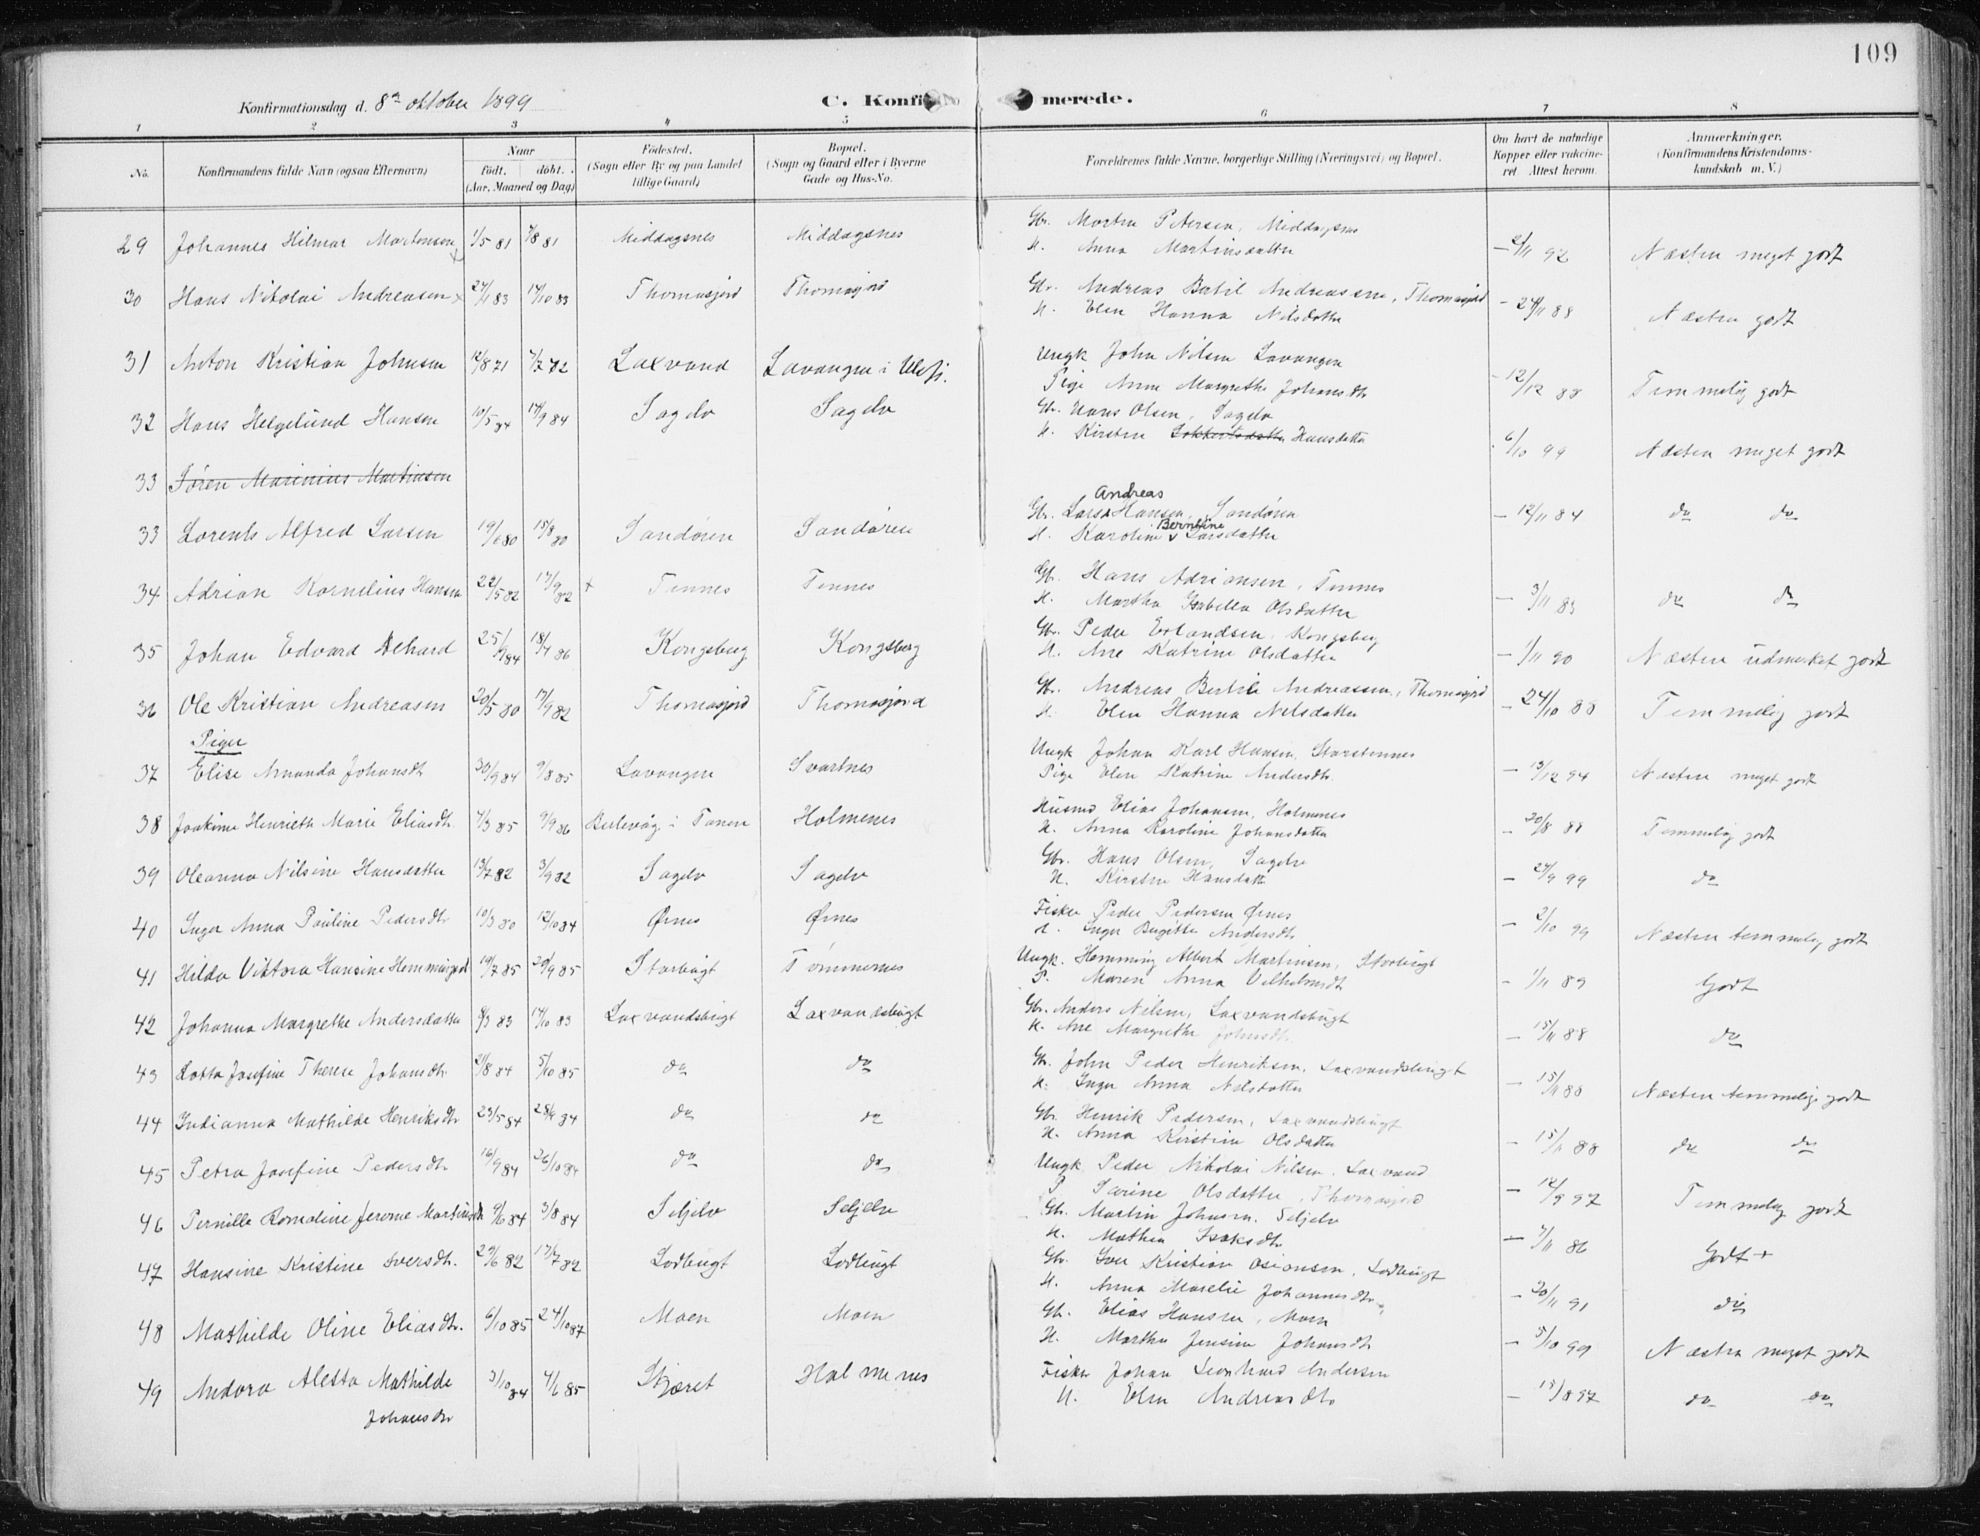 109
Konfirmationsdag d. 8de oktober 1899
C. Konfirmerede.
1 2 3 4 5 6 7 8
No. Konfirmandens fulde Navn (ogsaa Efternavn) Naar født. døbt. (Aar, Maaned og Dag) Fødested. (Sogn eller By og paa Landet tillige Gaard) Bopæl. (Sogn og Gaard eller i Byerne Gade og Hus-No. Forældrenes fulde Navne, borgerlige Stilling (Næringsvei) og Bopæl. Om havt de naturlige Kopper eller vakcineret Attest herom. Anmærkninger. (Konfirmandens Kristendomskundskab m. V.)
29 Johannes Hilmar Mortensen 1/5 81 7/8 81 Middagsnes Middagsnes Gbr. Morten Petersen, Middagsnes
H. Anna Martinsdatter — 2/11 92 Næsten meget godt
30 Hans Nikolai Andreasen 14/10 83 Thomasjord Thomasjord Gbr. Andreas Bertil Andreassen, Thomasjord
H. Elen Hanna Nilsdatter — 24/11 88 Næsten godt
31 Anton Kristian Johnsen 12/8 71 7/7 72 Laxvand Lavangen i Ulfsfj. Ungk John Nilsen Lavangen
Pige Anne Margrethe Johansdtr — 12/12 88 Temmelig godt
32 Hans Helgelund Hansen 10/5 84 14/9 84 Sagelv Sagelv Gbr. Hans Olsen, Sagelv
H. Kirsten Hansdatter 6/10 99 Næsten meget godt
33 Søren Marinius Martinsen
33 Lorents Alfred Larsen 19/6 80 15/8 80 Sandøren Sandøren Gbr. Lars Andreas Hansen, Sandøren
H. Karoline Berntine Larsdatter — 12/11 84 do do
34 Adrian Kornelius Hansen 22/5 82 17/9 82 + Tennes Tennes Gbr. Hans Adriansen, Tennes
H. Martha Isabella Olsdatter — 3/11 83 do do
35 Johan Edvard Dehard 25/9 84 18/4 86 Kongsberg Kongsberg Gbr. Peder Erlandsen, Kongsberg
H. Ane Katrine Olsdatter — 1/11 90 Næsten udmerket godt
36 Ole Kristian Andreasen 20/5 80 17/9 82 Thomasjord Thomasjord Gbr. Andreas Bertil Andreassen, Thomasjord
H. Elen Hanna Nilsdatter — 24/10 88 Temmelig godt
Piger
37 Elise Amanda Johansdtr 30/9 84 9/8 85 Lavangen Svartnes Ungk Johan Karl Hansen, Storstennes
Pige Elen Katrine Andersdtr. — 13/12 94 Næsten meget godt
38 Joakime Henriette Marie Eliasdtr. 7/3 85 9/9 86 Berlevåg i Tanen Holmenes Husmd Elias Johansen, Holmenes
H. Anna Karoline Johansdatter — 20/8 88 Temmelig godt
39 Oleanna Nilsine Hansdatter 13/7 82 3/9 82 Sagelv Sagelv Gbr. Hans Olsen, Sagelv
H. Kirsten Hansdatt — 24/9 99 do
40 Inger Anna Pauline Pedersdtr 10/3 80 12/10 84 Ørnes Ørnes Fisker Peder Pedersen Ørnes
H. Inger Birgitte Andersdtr — 2/10 99 Næsten temmelig godt
41 Hilda Viktoria Hansine Hemmingsd 19/7 85 20/9 85 Storbugt Tømmernes Ungk. Hemming Albert Martinsen, Storbugt
P. Maren Anna Vilhelmsdtr — 1/11 89 Godt
42 Johanna Margrethe Andersdatter 8/3 83 14/10 83 Laxvandsbugt Laxvandsbugt Gbr. Anders Nilsen, Laxvandsbugt
H. Ane Margrethe Johnsdtr. — 15/11 88 do
43 Lotta Josefine Therese Johansdtr. 21/8 84 5/10 85 do do Gbr. John Peder Henriksen, Laxvandsbugt
H. Inger Anna Nilsdatter — 15/11 88 Næsten temmelig godt
44 Indianna Mathilde Henriksdtr 23/5 84 28/9 84 do do Gbr. Henrik Pedersen, Laxvandsbugt
H. Anna Kirstine Olsdatter — 15/11 88 do do
45 Petra Josefine Pedersdtr. 16/9 84 26/10 84 do do Ungk Peder Nikolai Nilsen, Laxvand
P Sarine Olsdatter, Thomasjord — 12/9 97 Temmelig godt
46 Pernille Romoline Jerome Martinsdtr 9/6 84 3/8 84 Seljelv Seljelv Gbr. Martin Johnsen, Seljelv
H. Mathea Isaksdtr. — 7/11 86 Godt +
47 Hansine Kristine Iversdtr. 29/6 82 17/7 82 Lodbugt Lodbugt Gbr. Iver Kristian Osiansen, Lodbugt
H. Anna Marelie Johannesdtr — 20/11 91 do
48 Mathilde Oline Eliasdtr. 6/10 85 24/10 87 Moen Moen Gbr. Elias Hansen, Moen
H. Martha Jensine Johansdtr — 5/10 99 Næsten meget godt
49 Andora Aletta Mathilde Johansdtr 3/10 84 4/6 85 Skjæret Holmenes Fisker Johan Leonhard Andersen
H. Elen Andreasdtr — 15/8 97 do do